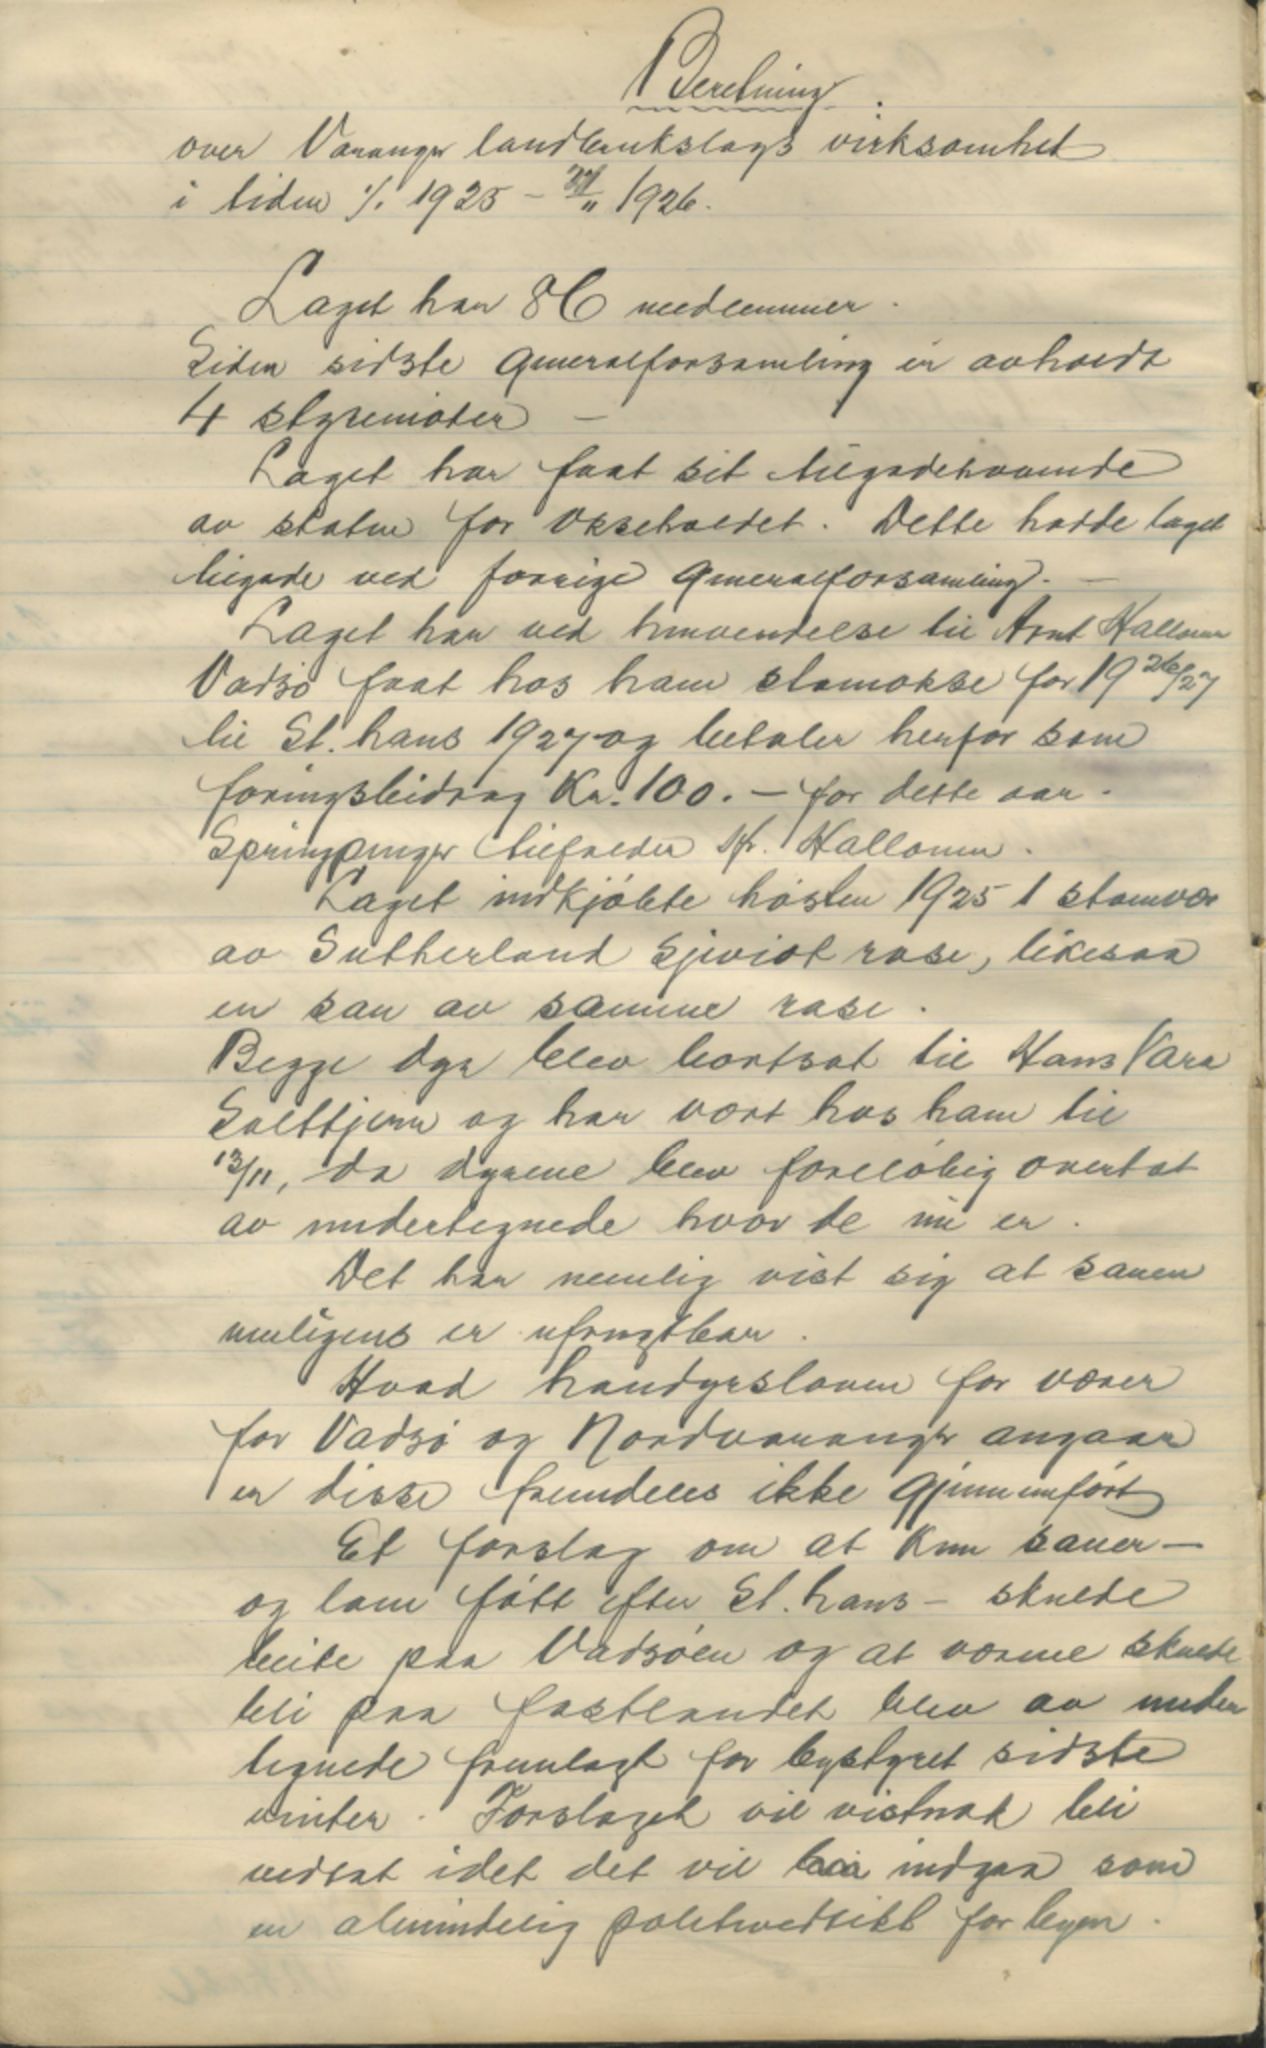 Beretning
over Varanger landbrukslags virksomhet
i tiden 1/1 1925 - 27/11 1926.
Laget har 86 medlemmer.
Siden sidste generalforsamling er avholdt
4 styremøter -
Laget har faat sit tilgodehavende
av staten for okseholdet. Dette hadde laget
tilgode ved forrige generalforsamling. -
Laget har ved henvendelse til Arnt Hallonen
Vadsø faat hos ham stamokse for 1926/27
til St. hans 1927 og betaler herfor som
foringsbidrag Kr. 100. - for dette aar.
Springpenger tilfalder Hr. Hallonen.
Laget indkjøbte høsten 1925 1 stamvær
av Sutherland Sjeviot rase, likesaa
en sau av samme rase.
Begge dyr blev bortsat til Hans Vara
Golttjern og har vært hos ham til
13/11, da dyrene blev foreløbig overtat
av undertegnede hvor de nu er.
Det har nemlig vist sig at sauen
muligens er ufrugtbar.
Hvad handyrsloven for værer
for Vadsø og Nordvaranger angaar
er disse fremdeles ikke gjennemført
Et forslag om at kun sauer -
og lam født efter St. hans - skulde
beite paa Vadsøen og at værene skulde
bli paa fastlandet blev av under
tegnede fremlagt for bystyret sidste
vinter. Forslaget vil vistnok bli
vedtat idet det vil indgaa som
en almindelig politivedtekt for byen.